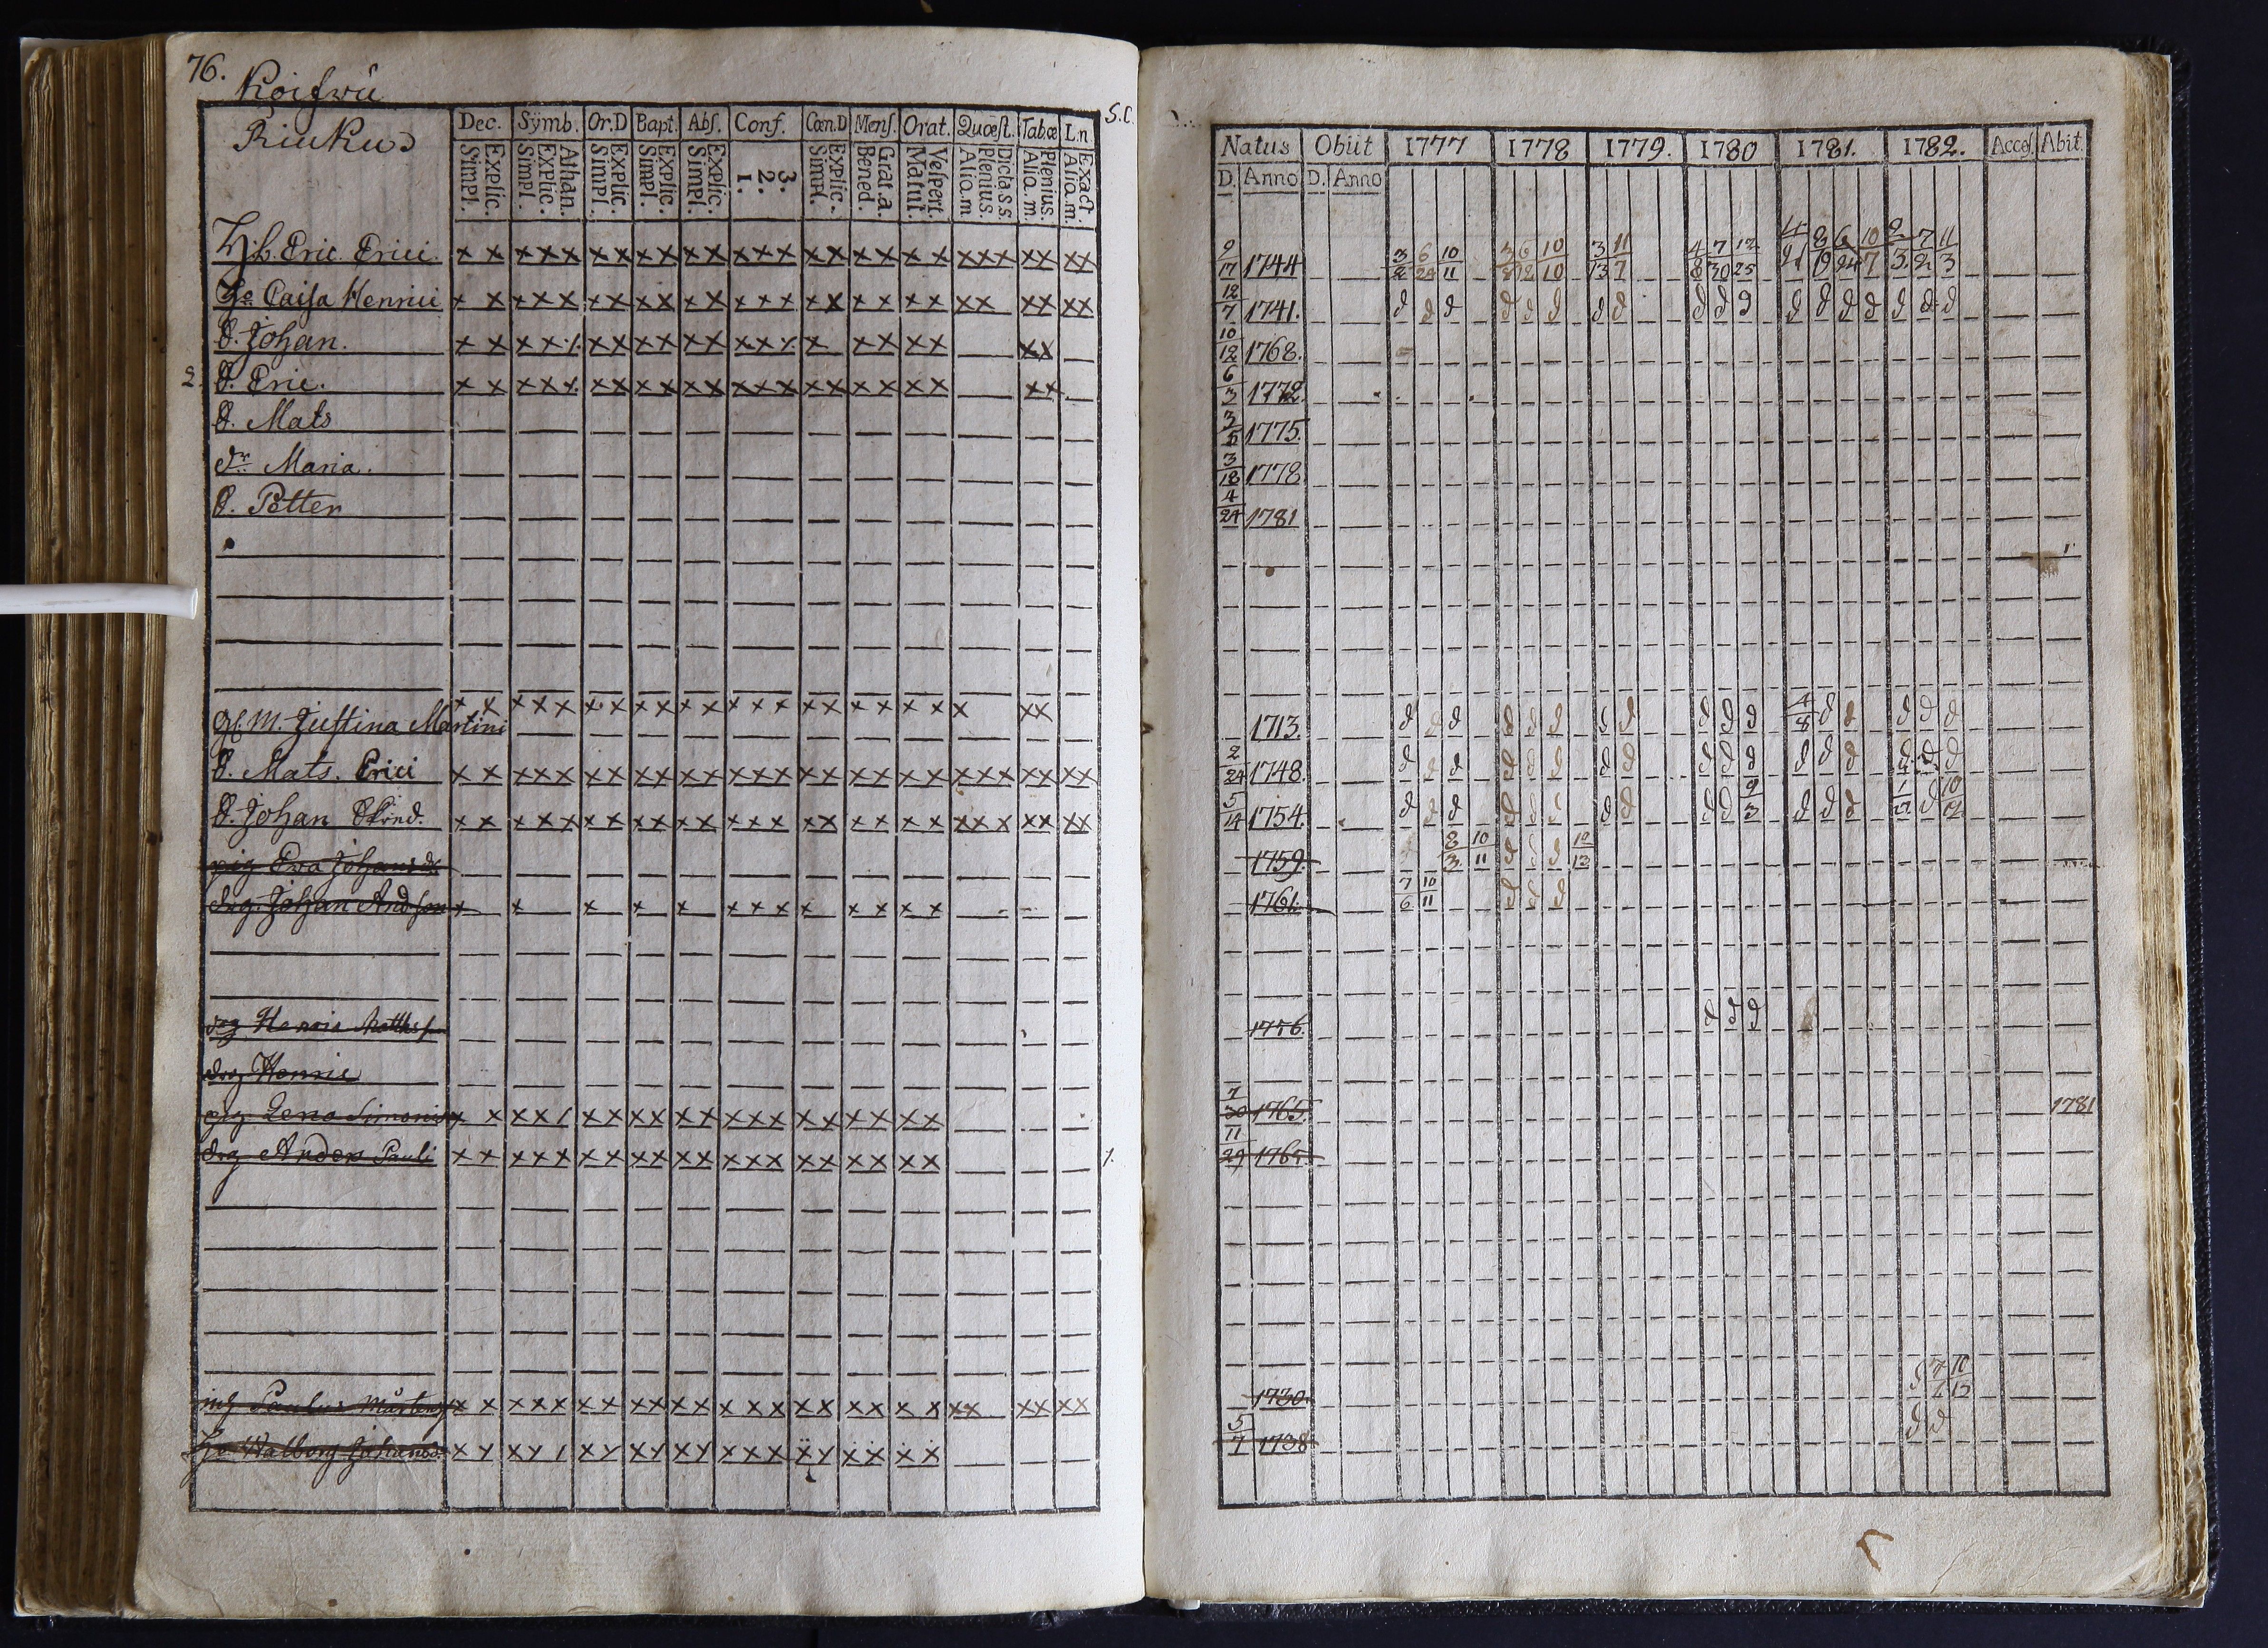 76.
Koifwu
Riukus
S.C.
Dec. Symb. Or.D Bapt. Abs. Conf. Cœn.D Mens. Orat. Quæst. Tab.œ L.n
Explic. Simpl. Athan. Explic. Simpl. Explic. Simpl. Explic. Simpl. Explic. Simpl. 3. 2. 1. Explic. Simpl. Grat.a. Bened. Vespert. Matut. Dicta s.s. Plenius. Aliq.m Plenius. Aliq.m. Exact. Aliq.m.
Hsb. Eric Erici x x x x x x x x x x x x x x x x x x x x x x x x x x x
Hu Caisa Henrici x x x x x x x x x x x x x x x x x x x x x x x x x x
S. Johan. x x x x / x x x x x x x x x x x x x x x x
2. S. Eric. x x x x x x x x x x x x x x x x x x x x x x
S. Mats
dr Maria.
S. Petter
M. Justina Martini x x x x x x x x x x x x x x x x x x x x x x x x
S. Mats. Erici x x x x x x x x x x x x x x x x x x x x x x x x x x x
S. Johan Skred. x x x x x x x x x x x x x x x x x x x x x x x x x x x
pig Ewa Johansd
drg. Johan Andsson x x x x x x x x x x x x x
drg Henric Matths
drg Henric
pig Lena Simonis x x x x / x x x x x x x x x x x x x x x
drg Anders Pauli x x x x x x x x x x x x x x x x x x x x 1.
Paulus Mårtens x x x x x x x x x x x x x x x x x x x x x x x x x x
Hu Walborg Johansd. x x x x / x x x x x x x x x x x x x x x
Natus Obiit 1777 1778 1779. 1780 1781. 1782. Acces. Abit.
D. Anno D. Anno
9/17 1744 3/2 6/24 10/11 3/8 6/12 10/10 3/13 11/7 4/8 7/30 12/25
12/7 1741. d d d d d d d d d d d d d d d d d d
10/12 1768.
6/3 1772.
3/5 1775.
3/18 1778
4/24 1781
1713. d d d d d d d d d d d 4/8 d d d d d
2/24 1748. d d d d d d d d d d d d d d d d d
5/14 1754. d d d d d d d d d d 9/3 d d d
1759. 8/3 10/11 d d d 12/13
1761. 7/6 10/11 d d d
1756. d d d
7/30 1765. 1781
11/29 1765
1730. d 7/7 10/13
5/7 1738 d d